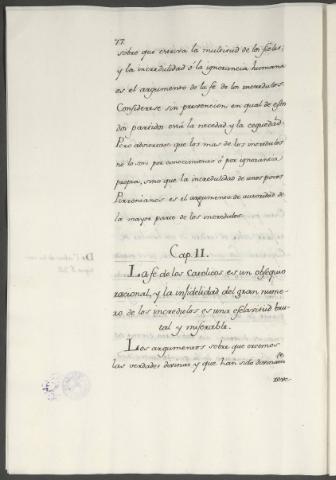 77.
sobre que estriva la multitud de los fieles;
y la incredulidad ó la ignorancia humana
es el argumento de la fe de los incredulos.
Considerese sin prevencion en qual de estos
dos partidos está la necedad y la ceguedad.
Pero observese que los mas de los incredulos
no lo son por conocimiento ó por ignorancia
propia, sino que la incredulidad de unos pocos
Pirronianos es el argumento de autoridad de
la mayor parte de los incredulos.
Cap. II.
La fe de los Catolicos es un obsequio
racional, y la infidelidad del gran nume-
ro de los incredulos es una esclavitud bru-
tal y miserable.
Los argumentos sobre que creemos
las verdades divinas y que han sido divinam.te